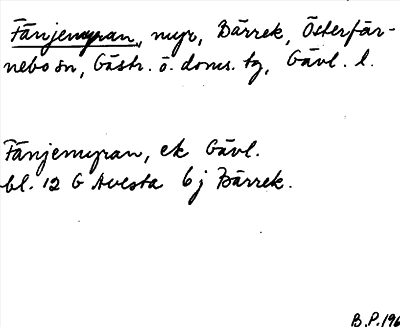 Fänjemyran, myr, Bärrek, Österfär-
nebo sn, Gästr. ö. doms. tg, Gävl. l.
Fänjemyran, ek Gävl.
bl. 12 G Avesta 6 j Bärrek.
B.P. 196